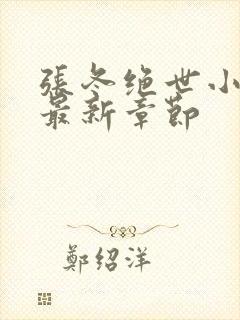 張冬绝世小
最新章節
鄭绍洋